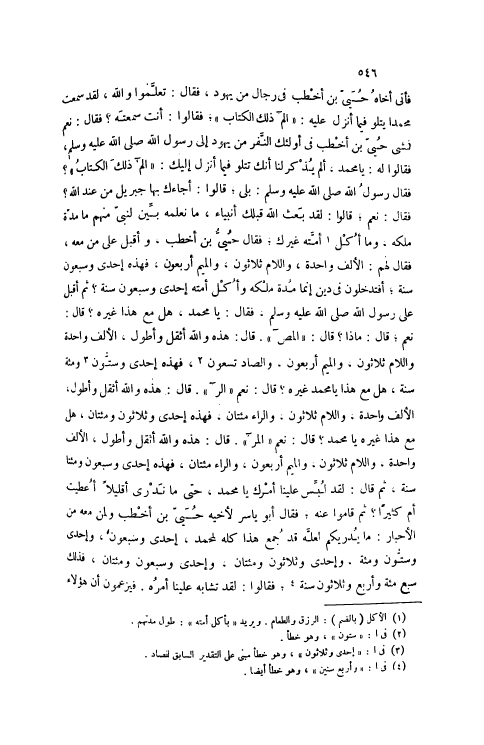 ٥٤٦
فأتى أخاه حُيَيّ بن أخْطب فى رجال من يهود ، فقال : تعلَّموا والله ، لقد سمعت
محمدا يتلو فيما أنزل عليه : « الم ٓ ذلك الكتاب » ؛ فقالوا : أنت سمعتَه ؟ فقال : نعم
فمشى حُيىّ بن أخْطب فى أولئك النَّفر من يهود إلى رسول الله صلى الله عليه وسلم،
فقالوا له : يا محمد ، ألم يُذْكر لنا أنك تتلو فيما أنزل إليك : « الم ٓ ذلكَ الكتابُ » ؟
فقال رسولُ الله صلى الله عليه وسلم : بلى ؛ قالوا : أجاءك بها جبريل من عند الله ؟
فقال : نعم ؛ قالوا : لقد بَعث الله قبلك أنبياء ، ما نعلمه بَيَّن لنبىّ منهم ما مدّة
ملكه . وما أُكُل ١ أمَّته غيرك ؛ فقال حُيىُّ بن أخطب ، و أقبل على من معه ،
فقال لهم : الألف واحدة ، واللام ثلاثون ، والميم أربعون ، فهذه إحدى وسبعون
سنة ؛ أفتدخلون فى دين إنما مُدة ملْكه وأُكُل أمته إحدى وسبعون سنة ؟ ثم أقبل
على رسول الله صلى الله عليه وسلم ، فقال : يا محمد ، هل مع هذا غيرُه ؟ قال :
نعم ؛ قال : ماذا ؟ قال : « المص ٓ » . قال : هذه والله أثقل وأطول ، الألف واحدة
واللام ثلاثون ، والميم أربعون . والصاد تسعون ٢ ، فهذه إحدى وستُّون ٣ ومئة
سنة ، هل مع هذا يا محمد غيره ؟ قال : نعم « الر ٓ » . قال : هذه والله أثقل وأطول،
الألف واحدة ، واللام ثلاثون ، والراء مئتان ، فهذه إحدى وثلاثون ومئتان ، هل
مع هذا غيره يا محمد ؟ قال : نعم « المر ٓ » . قال : هذه والله أثقل وأطول ، الألف
واحدة . واللام ثلاثون ، والميم أربعون ، والراء مئتان ، فهذه إحدى وسبعون ومئتا
سنة ، ثم قال : لقد لُبِّس علينا أمْرك يا محمد ، حتى ما نَدْرى أقليلاً أُعطيت
أم كثيرًا ؟ ثم قاموا عنه ؛ فقال أبو ياسر لأخيه حُيَىّ بن أخْطب ولمن معه من
الأحبار : ما يُدْريكم لعلَّه قد جُمع هذا كله لمحمد ، إحدى وسبعون ، وإحدى
وستُّون ومئة . وإحدى وثلاثون ومئتان ، وإحدى وسبعون ومئتان ، فذلك
سبع مئة وأربع وثلاثون سنة ٤ ؛ فقالوا : لقد تشابه علينا أمرُه . فيزعمون أن هؤلاء
(١) الأكل ( بالضم ) : الرزق والطعام . ويريد « بأكل أمته » : طول مدتهم .
(٢) فى ا : « ستون » ، وهو خطأ .
(٣) فى ا : « إحدى وثلاثون » ، وهو خطأ مبنى على التقدير السابق لصاد .
(٤) فى ا : « وأربع سنين » ، وهو خطأ أيضا .